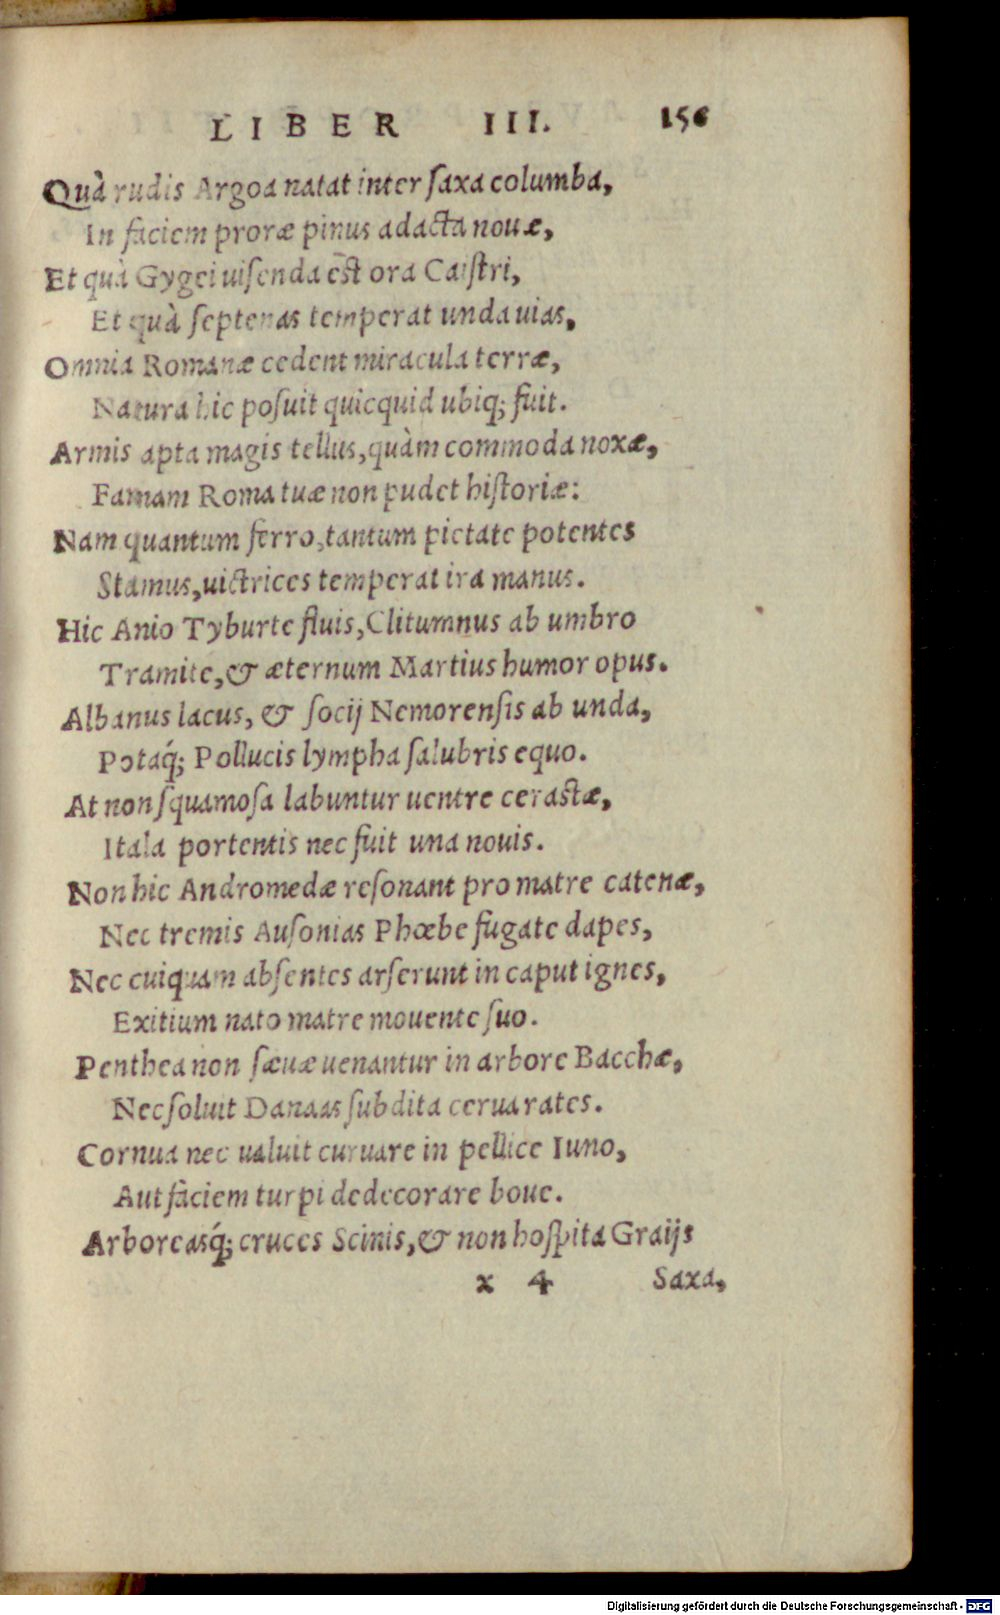 LIBER III. 156
Quà rudis Argoa natat inter ſaxa columba,
In faciem proræ pinus adacta nouæ,
Et quà Gygei uiſenda est ora Caiſtri,
Et quà ſeptenas temperat unda uias,
Omnia Romanæ cedent miracula terræ,
Natura hic poſuit quicquid ubiq; fuit.
Armis apta magis tellus, quàm commoda noxæ,
Famam Roma tuæ non pudet hiſtoriæ:
Nam quantum ferro, tantum pietate potentes
Stamus, uictrices temperat ira manus.
Hic Anio Tyburte fluis, Clitumnus ab umbro
Tramite, & æternum Martius humor opus.
Albanus lacus, & ſocij Nemorenſis ab unda,
Potaq́; Pollucis lympha ſalubris equo.
At non ſquamoſa labuntur uentre cerastæ,
Itala portentis nec fuit una nouis.
Non hic Andromedæ reſonant pro matre catenæ,
Nec tremis Auſonias Phœbe fugate dapes,
Nec cuiquam abſentes arſerunt in caput ignes,
Exitium nato matre mouente ſuo.
Penthea non ſæuæ uenantur in arbore Bacchæ,
Nec ſoluit Danaas ſubdita cerua rates.
Cornua nec ualuit curuare in pellice Iuno,
Aut faciem turpi dedecorare boue.
Arboreasq́; cruces Scinis, & non hoſpita Graijs
x 4 Saxa,
Digitalisierung gefördert durch die Deutsche Forschungsgemeinschaft - DFG